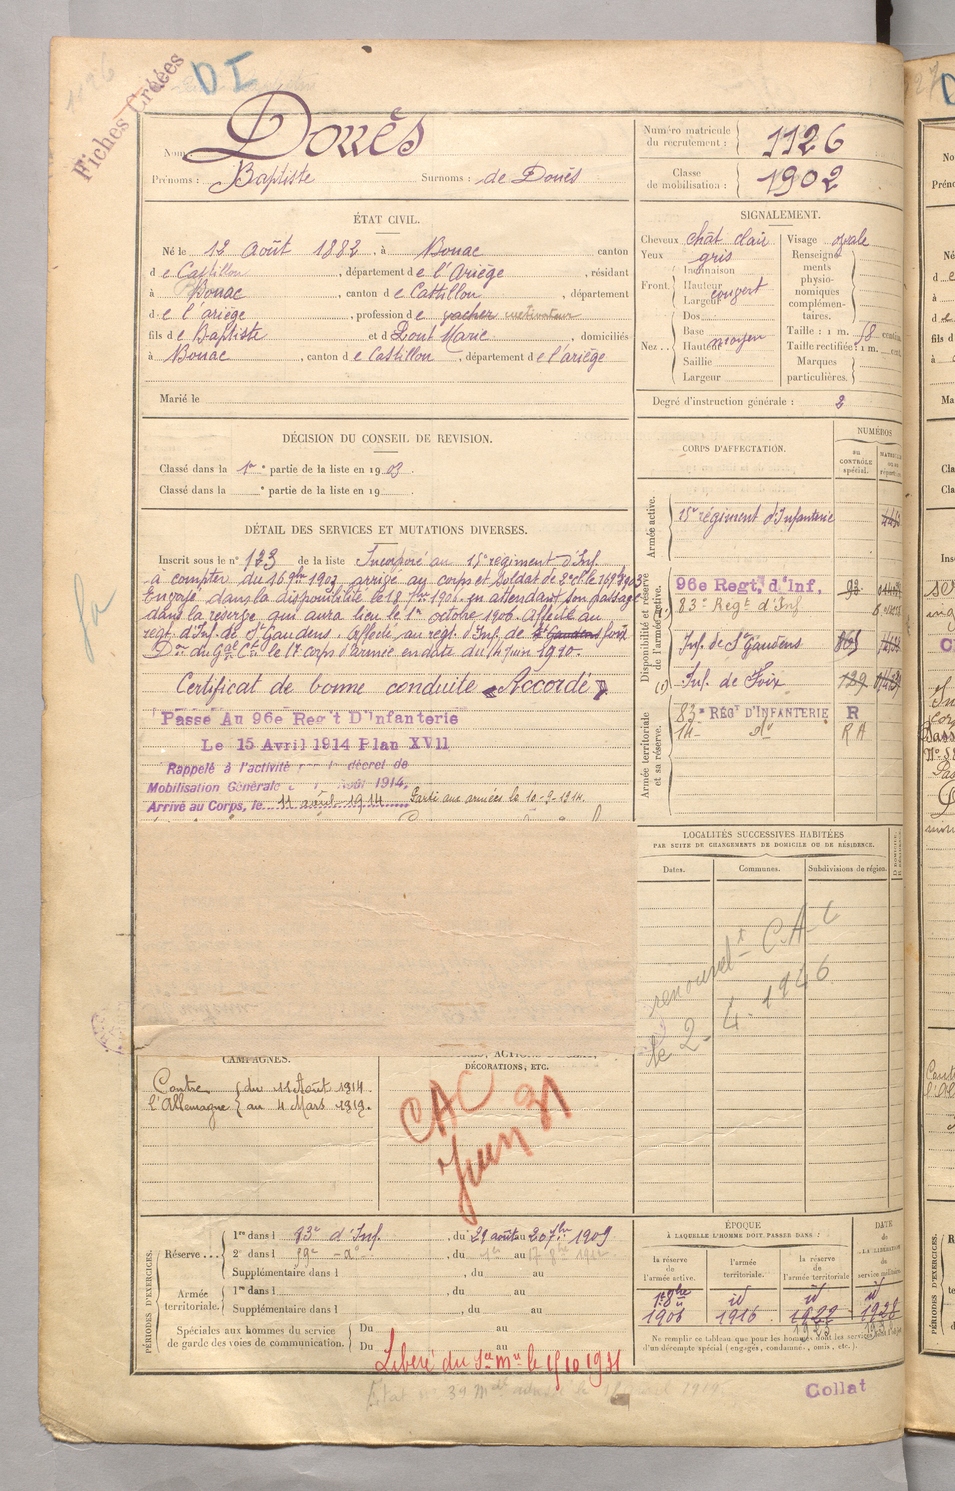 Fiches Créées
DI
Nom Douès
Prénoms : Baptiste Surnoms : de Douès
Numéro matricule du recrutement : 1126
Classe de mobilisation : 1902
ÉTAT CIVIL.
Né le 12 août 1882, à Bonac canton
de Castillon, département de l'Ariège, résidant
à Bonac, canton de Castillon, département
de l'ariège, profession de vacher cultivateur
fils de Baptiste et de Pont Marie, domiciliés
à Bonac, canton de Castillon, département de l'ariège
Marié le
SIGNALEMENT.
Cheveux chât clair
Yeux gris
Front. Inclinaison
Hauteur
Largeur couvert
Nez. Dos
Base
Hauteur moyen
Saillie
Largeur
Visage ovale
Renseignements physionomiques complémentaires.
Taille : 1 m. 58 cent
Taille rectifiée : 1 m. cent
Marques particulières.
Degré d'instruction générale : 2
DÉCISION DU CONSEIL DE REVISION.
Classé dans la 1re partie de la liste en 1903.
Classé dans la e partie de la liste en 19
DÉTAIL DES SERVICES ET MUTATIONS DIVERSES.
Inscrit sous le n° 123 de la liste Incorporé au 15e régiment d'Inf.
à compter du 16 9bre 1903 arrivé au corps et soldat de 2e cl. le 16 9bre 1903
dans la disponibilité le 18 en attendant son passage
dans la réserve qui aura lieu le 1er octobre 1906. Affecté au
régt d'Inf. de St Gaudens. Affecté au régt d'Inf. de St Gaudens Foix
Don du Gal Ct le 17 corps d'armée en date du 14 juin 1910.
Certificat de bonne conduite « Accordé ».
Passé Au 96e Reg't D'Infanterie
Le 15 Avril 1914 Plan XVII
Rappelé à l'activité décret de
Mobilisation Générale août 1914,
Arrivé au Corps, le 11 août 1914 Parti aux armées le 10-9-1914.
CORPS D'AFFECTATION.
NUMÉROS
au contrôle spécial.
Armée active.
15e régiment d'Infanterie
Disponibilité et réserve de l'armée active.
96e Regt. d'Inf. 93
83e Régt d'Inf
Inf. de St Gaudens 865
Inf. de Foix 129
Armée territoriale et sa réserve.
83e RÉGt D'INFANTERIE R
14- do RA
LOCALITÉS SUCCESSIVES HABITÉES
PAR SUITE DE CHANGEMENTS DE DOMICILE OU DE RÉSIDENCE.
Dates. Communes. Subdivisions de région.
renouvelt C.A.C
le 2-4-1946
CAMPAGNES.
Contre l'Allemagne
du 11 Août 1914.
au 4 Mars 1919.
DÉCORATIONS, ETC.
CAC
Juin 31
PÉRIODES D'EXERCICES.
Réserve
1re dans l 83e d'Inf., du 29 août au 20 7bre 1909
2e dans l , du au
Supplémentaire dans l , du au
Armée territoriale.
1re dans l , du au
Supplémentaire dans l , du au
Spéciales aux hommes du service de garde des voies de communication.
Du au
Du au
ÉPOQUE
À LAQUELLE L'HOMME DOIT PASSER DANS :
DATE DE LA LIBÉRATION du service militaire.
la réserve de l'armée active.
l'armée territoriale.
la réserve de l'armée territoriale
1er 8bre 1906
id 1916
id 1922
id 1928
Ne remplir ce tableau que pour les hommes dont les services
d'un décompte spécial (engagés, condamnés, omis, etc.).
Libéré du Sce Mre le 15 10 1931
Collat